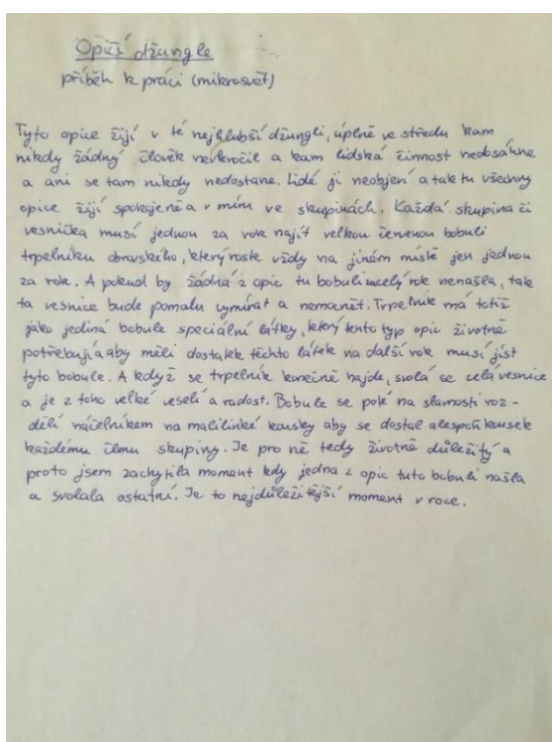 Opičí džungle
příběh k práci (mikrosvět)
Tyto opice žijí v té nejhlubší džungli, úplně ve středu kam
nikdy žádný člověk nevkročil a kam lidská činnost nedosáhne
a ani se tam nikdy nedostane. Lidé ji neobjeví a tak tu všechny
opice žijí spokojeně a v míru ve skupinách. Každá skupina či
vesnička musí jednou za rok najít velkou červenou bobuli
trpelníku obravského, který roste vždy na jiném místě jen jednou
za rok. A pokud by žádná z opic tu bobuli za celý rok nenašla, tak
ta vesnice bude pomalu vymírat a nemocnět. Trpelník má totiž
jako jediná bobule speciální látky, který tento typ opic životně
potřebují a aby měli dostatek těchto látek na další rok musí jíst
tyto bobule. A když se trpelník konečně najde, svolá se celá vesnice
a je z toho velké veselí a radost. Bobule se poté na slavnosti roz-
dělí náčelníkem na malilinké kousky aby se dostal alespoň kousek
každému členu skupiny. Je pro ně tedy životně důležitý a
proto jsem zachytila moment kdy jedna z opic tuto bobuli našla
a svolala ostatní. Je to nejdůležitější moment v roce.